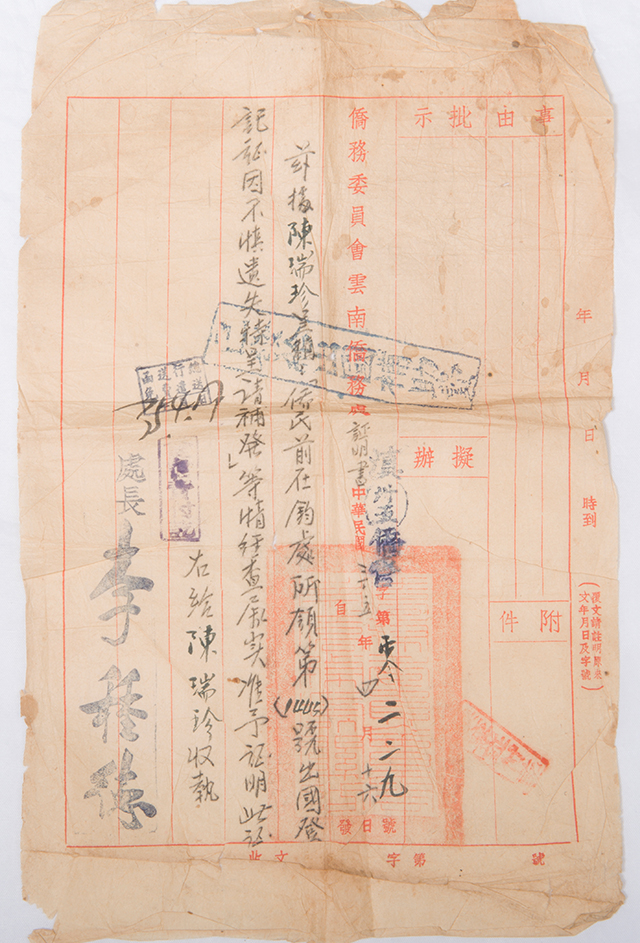 事由
批示
擬辦
附件
年月日時到
覆文請註明原來文年月日及字號
僑務委員會雲南僑務處證明書
中華民國三十五年四月十六日發
字第零二二九號
茲據陳瑞珍呈稱「僑民前在鈞處所領第(1445)號出國登
記証因不慎遺失特呈請補發」等情經查屬實准予証明此証
右給陳瑞珍收執
處長 李種德
收文 字第 號